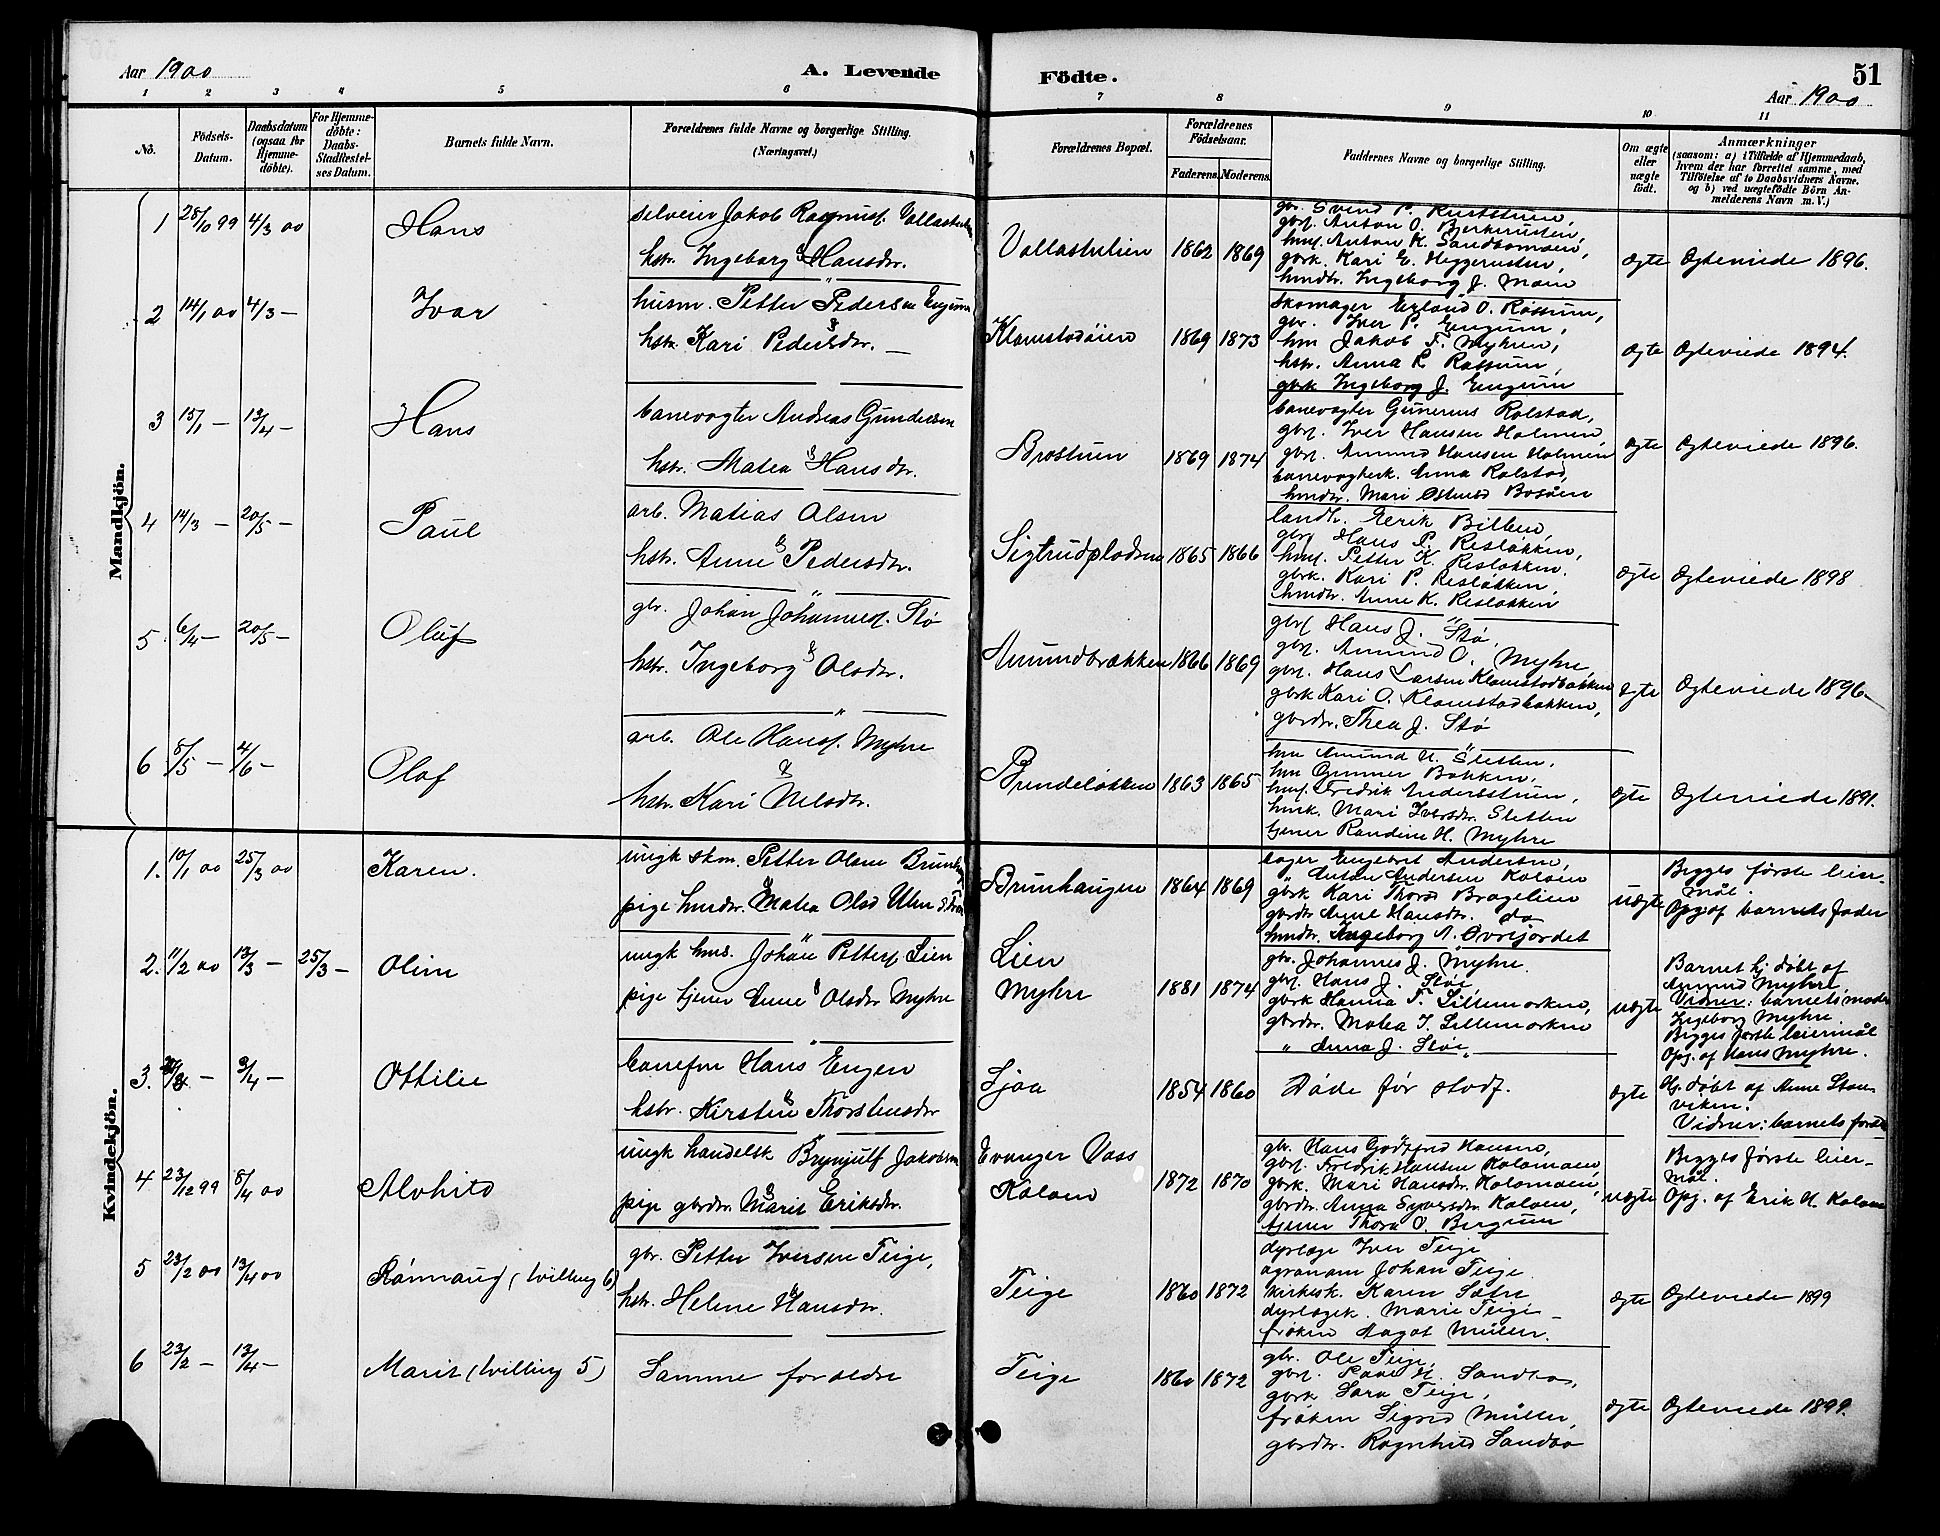 Aar 1900
A. Levende Födte.
51
Aar 1900
1 2 3 4 5 6 7 8 9 10 11
No.
Födsels-Datum.
Daabsdatum (ogsaa for Hjemme-döbte).
For Hjemme-döbte: Daabs-Stadfæstel-ses Datum.
Barnets fulde Navn.
Forældrenes fulde Navne og borgerlige Stilling. (Næringsvei.)
Forældrenes Bopæl.
Forældrenes Födselsaar.
Faderens. Moderens.
Faddernes Navne og borgerlige Stilling.
Om ægte eller uægte födt.
Anmærkninger
(saasom: a) i Tilfælde af Hjemmedaab,
hvem der har forrettet samme, med
Tilföielse af to Daabsvidners Navne.
og b) ved uægtefödte Börn An-
melderens Navn m. V.)
Mandkjön.
1 28/10 99 4/3 00 Hans
selveier Jakob Rasmuss.
hstr. Ingeborg Hansdr.
1862 1869
gbr. Svend P.
gbrs. Anton O.
hms. Anton K. Sandbomoen,
gbrk. Kari E. Heggerusten,
hmdtr. Ingeborg J. Moen
ægte Ægteviede 1896.
2 14/1 00 4/3 — Ivar
husm. Petter Pedersen
hstr. Kari Pedersdr. —
Klomstadøien 1869 1873
skomager Erland O. Røssum,
gbr. Iver P. Engum,
hm Jakob F. Myhren,
hstr. Anna R. Røssum,
gbrk Ingeborg J. Engum
ægte Ægteviede 1894.
3 15/1 — 13/4 — Hans
banevogter Andreas Gundersen
& hstr. Matea Hansdr.
Brostuen 1869 1874
banevogter Gunerius Rolstad,
gbrs. Iver Hansen Holmen,
gbrs. Amund Hansen Holmen
banevogterk. Anna Rolstad,
hmdtr. Mari
ægte Ægteviede 1896.
4 14/3 — 20/5 — Paul
arb. Matias Olsen
& hstr. Anne Pedersdr.
1865 1866
landh. Eerik Bilben,
gbrs Hans P. Resløkken,
hms. Petter K. Resløkken.
gbrk. Kari P. Resløkken,
hmdtr. Anne K. Resløkken
ægte Ægteviede 1898
5 6/4 — 20/5 — Oluf
gbr. Johan Johanness. Stø
& hstr. Ingeborg Olsdr.
Amundbrækken 1866 1869
gbrs Hans J. Stø,
gbrs. Amund O. Myhre,
gbrs. Hans Larsen Klomstadbakken
gbrk Kari O. Klomstadbakken,
gbrdtr. Thea J. Stø
ægte Ægteviede 1896.
6 5/5 — 4/6 — Olaf
arb. Ole Hanss. Myhre
& hstr. Kari Nilsdtr.
1863 1865
hm Amund N. Sletten,
hm Gunner Bakken,
hms. Fredrik
hmk. Mari Iversdr. Sletten
tjener Randine H. Myhre
ægte Ægteviede 1891.
Kvindekjön.
1. 10/1 00 25/3 00 Karen.
ungk skom. Petter Olsen
& pige hmdtr. Matea Olsd Ulen
Brunhaugen 1864 1869
Engebret Andersen,
" Anton Andersen Koloen
gbrk Kari Thorsd Bragelien
gbrdtr Anne Hansdr. do
hmdtr. Ingeborg A. Øvrejordet
uægte
Begges første leier-
mål.
Opg. af barnets fader
2. 11/2 00 13/3 — 25/3 — Oline
ungk hms. Johan Petters Lien
& pige tjener Anne Olsdtr Myhre
Lien
Myhre
1881 1874
gbr. Johannes J. Myhre.
gbrs. Hans J. Støe,
gbrk Hanna T. Lillemorken,
gbrdtr. Matea T. Lillemorken
" Anna J. Støe
uægte
Barnet hj. døbt af
Amund Myhre.
Vidner: barnets moder
Ingeborg Myhre.
Begges første leiermål
Opg. af Hans Myhre.
3. — 3/4 — Ottilie
baneform Hans Engen
& hstr. Kirstine Thorstensdr
Sjoa 1854 1860
Døde før stadf.
ægte
Hj. døbt af Anne
Vidner: barnets
4 23/12 99 8/4 00 Alvhild
ungk handelsk Brynjulf Jakobsen
& pige gbrdtr. Marit Eriksdr.
Evanger Voss
Koloen
1872 1870
gbr. Hans Godtfred Hansen,
gbrs. Fredrik Hansen Kolomoen,
gbrk. Mari Hansdr. Kolomoen,
gbrdtr. Anna Syversdr. Koloen,
tjener Thora O. Bergum
uægte
Begges første leier-
mål.
Opg. af Erik H. Koloen
5 23/2 00 13/4 00 Rønnaug (tvilling 6)
gbr. Petter Iversen Teige,
& hstr. Helene Hansdtr.
Teige 1860 1872
dyrlæge Iver Teige
agronom Johan Teige
kirkesk. Karen Sætre
dyrlægek. Marie Teige
frøken Aagot Müller.
ægte Ægteviede 1899
6 23/2 — 13/4 — Marit (tvilling 5)
Samme foræeldre
Teige 1860 1872
gbr. Ole Teige,
gbrs. Paul H. Sandbo,
gbrk Sara Teige,
frøken Sigrid Müller,
gbrdtr. Ragnhild Sandbo
ægte Ægteviede 1899.